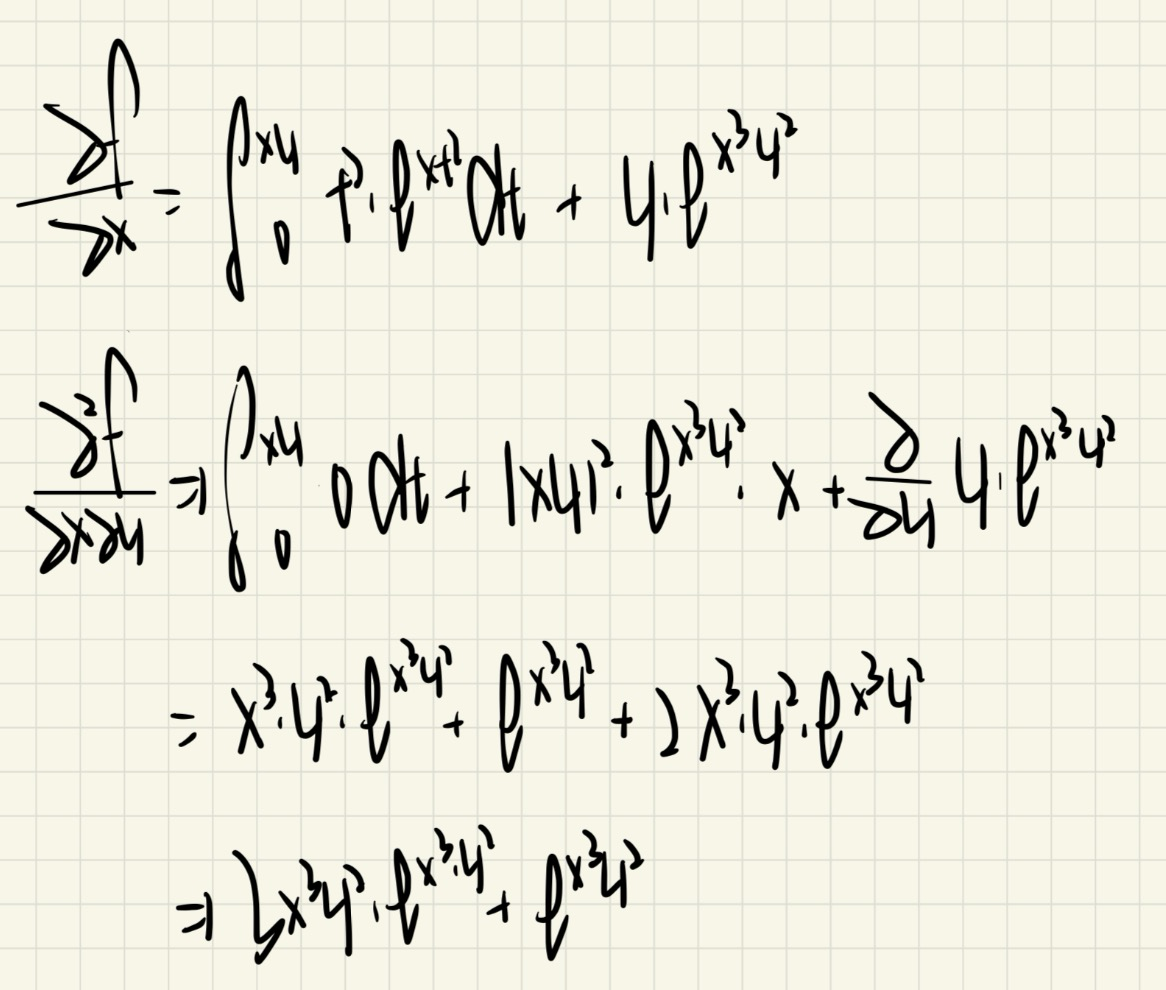 ∂f/∂x = ∫₀^{xy} t²·e^{xt²}dt + y·e^{x³y²}
∂²f/∂x∂y ⇒ ∫₀^{xy} 0 dt + (xy)²·e^{x³y²}·x + ∂/∂y y·e^{x³y²}
= x³·y²·e^{x³y²} + e^{x³y²} + 2x³·y²·e^{x³y²}
⇒ 3x³y²·e^{x³·y²} + e^{x³y²}